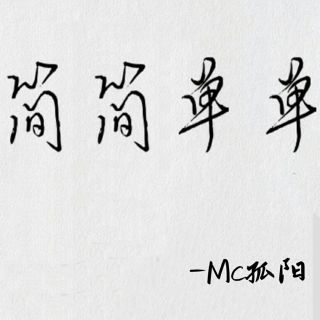 简简单单
-Mc孤阳